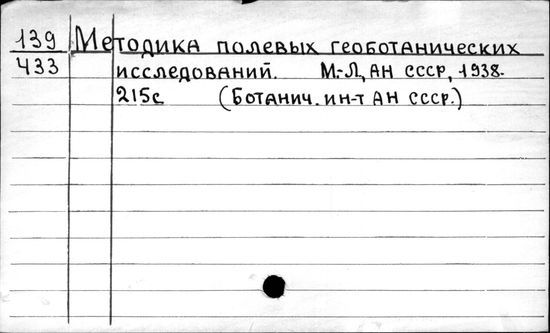 139 Методика полевых геоботанических
433 исследований. М.-Л, АН СССР, 1938.
215с (Ботанич. ин-т АН СССР.)